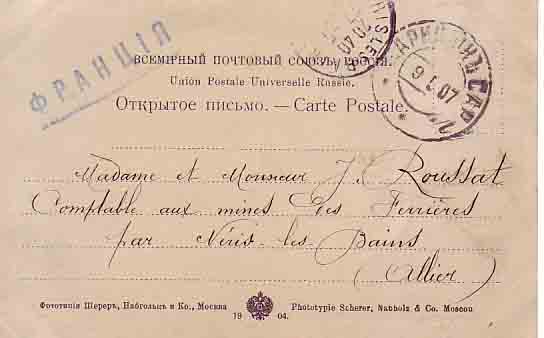 ФРАНЦІЯ
ВСЕМІРНЫЙ ПОЧТОВЫЙ СОЮЗЪ. РОССІЯ.
Union Postale Universelle Russie.
Открытое письмо. — Carte Postale.
9 5 07
Madame et Monsieur J. Roussat
Comptable aux mines des Ferrières
par Néris-les-Bains
(Allier)
Фототипія Шереръ, Набгольцъ и Ко., Москва
19 04.
Phototypie Scherer, Nabholz & Co. Moscou